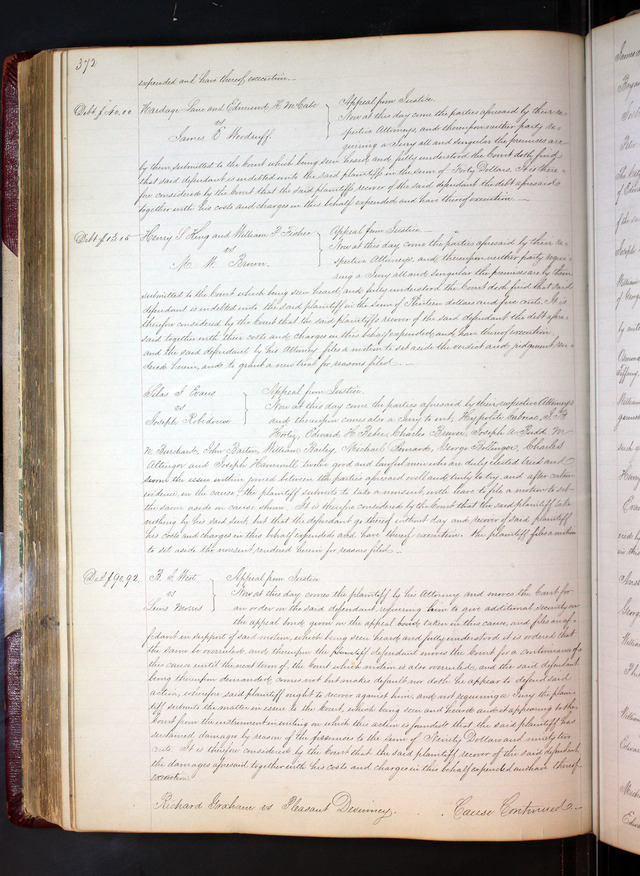 372
expended and have thereof execution.
Debt $40.00 Wardage Lane and Edmund H. McCabe } Appeal from Justice.
vs Now at this day come the parties aforesaid by their re-
James E Woodruff spective Attorneys, and thereupon neither party re-
quiring a Jury all and singular the premises are
by them submitted to the Court which being seen heard and fully understood the Court doth find
that said defendant is indebted unto the said plaintiffs in the sum of Forty Dollars. It is there-
fore considered by the Court that the said plaintiffs recover of the said defendant the debt aforesaid
together with his costs and charges in this behalf expended and have thereof execution.
Debt $13.15 Henry S King and William P. Fisher } Appeal from Justice
vs Now at this day come the parties aforesaid by their re-
M. W. Brown. spective Attorneys, and thereupon neither party requi-
ring a Jury all and singular the premises are by them
submitted to the Court which being seen heard, and fully understood the Court doth find that said
defendant is indebted unto the said plaintiff in the sum of Thirteen dollars and five cents. It is
therefore considered by the Court that the said plaintiffs recover of the said defendant the debt afore-
said together with their costs and charges in this behalf expended, and have thereof execution
and the said defendant by his Attorney files a motion to set aside the verdict and judgment ren-
dered herein, and to grant a new trial for reasons filed.
Silas J. Evans } Appeal from Justice
vs Now at this day come the parties aforesaid by their respective Attorneys
Joseph Robidoux and thereupon comes also a Jury to wit, Hyppolite
Edward H. Charles Brewer, Joseph A. Budd M
M Burchard, John Barton, William Bailey, Michael George Bollinger, Charles
and Joseph Hammill twelve good and lawful men who are duly elected tried and
sworn the issue within joined between the parties aforesaid well and truly to try, and after certain
evidence in the cause, the plaintiff submits to take a nonsuit with leave to file a motion to set
the same aside on cause shown. It is therefore considered by the Court that the said plaintiff take
nothing by his said suit, but that the defendant go thereof without day and recover of said plaintiff
his costs and charges in this behalf expended and have thereof execution. the plaintiff files a motion
to set aside the nonsuit rendered herein for reasons filed.
Debt $90.92 B. S. West } Appeal from Justice
vs Now at this day comes the plaintiff by his Attorney and moves the Court for
Lewis Morris an order on the said defendant requiring him to give additional security on
the appeal bond given on the appeal bond taken in this cause, and files an af-
fidavit in support of said motion, which being seen heard and fully understood it is ordered that
the same be overruled, and thereupon the plaintiff defendant moves the Court for a continuance of
this cause until the next term of the Court which motion is also overruled, and the said defendant
being thereupon demanded comes not but makes default nor doth he appear to defend said
action, wherefore said plaintiff ought to recover against him, and not requiring a Jury the plain-
tiff submits the matter in issue to the Court, which being seen and heard and it appearing to the
Court from the instrument in writing on which this action is founded that the said plaintiff has
sustained damages by reason of the premises to the sum of Ninety Dollars and ninety two
cents It is therefore considered by the Court that the said plaintiff recover of the said defendant
the damages aforesaid together with his costs and charges in this behalf expended and have thereof
execution.
Richard Graham vs Pleasant Devinney. Cause Continued